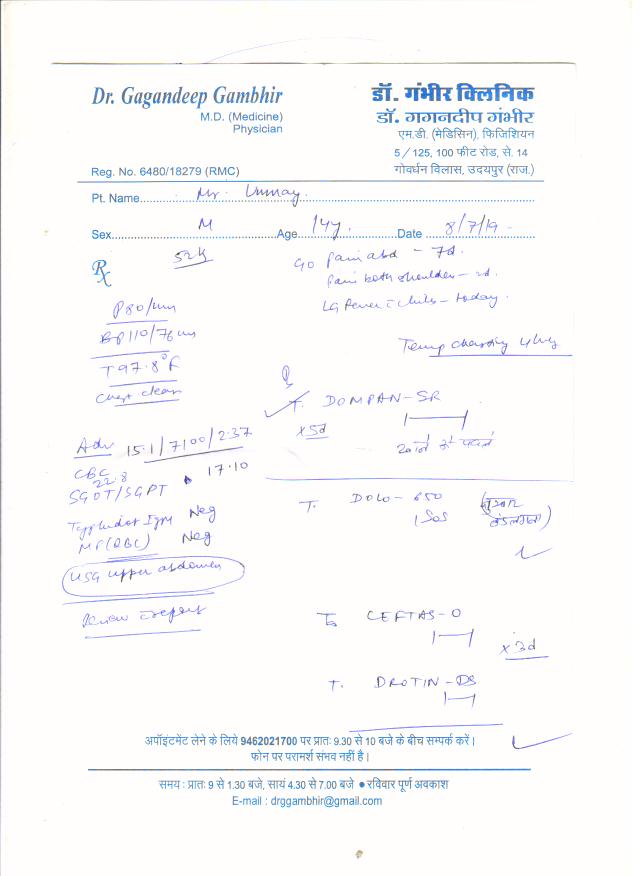 Dr. Gagandeep Gambhir
M.D. (Medicine)
Physician
Reg. No. 6480/18279 (RMC)
डॉ. गंभीर क्लिनिक
डॉ. गगनदीप गंभीर
एम.डी. (मेडिसिन), फिजिशियन
5/125, 100 फीट रोड, से. 14
गोवर्धन विलास, उदयपुर (राज.)
Pt. Name Mr.
Sex M Age 14y. Date 8/7/19
Rx 52k
C/O pain abd - 7d.
pain both shoulder -
fever chills - today.
P 80/min
BP 110/76
T 97.8°F
Chest clear
Temp charting 4 hrly
T. DOMPAN-SR
x5d
1
Adv 15.1/7100/2.37
CBC
22.8 17.10
SGOT/SGPT
Typhidot IgM Neg
MP(QBC) Neg
USG upper abdomen
Review report
T. DOLO-650
1 SOS
CEFTAS-O
1 1
x3d
T. DROTIN-DS
1 1
अपॉइंटमेंट लेने के लिये 9462021700 पर प्रातः 9.30 से 10 बजे के बीच सम्पर्क करें।
फोन पर परामर्श संभव नहीं है।
समय : प्रातः 9 से 1:30 बजे, सायं 4.30 से 7.00 बजे ● रविवार पूर्ण अवकाश
E-mail : drggambhir@gmail.com